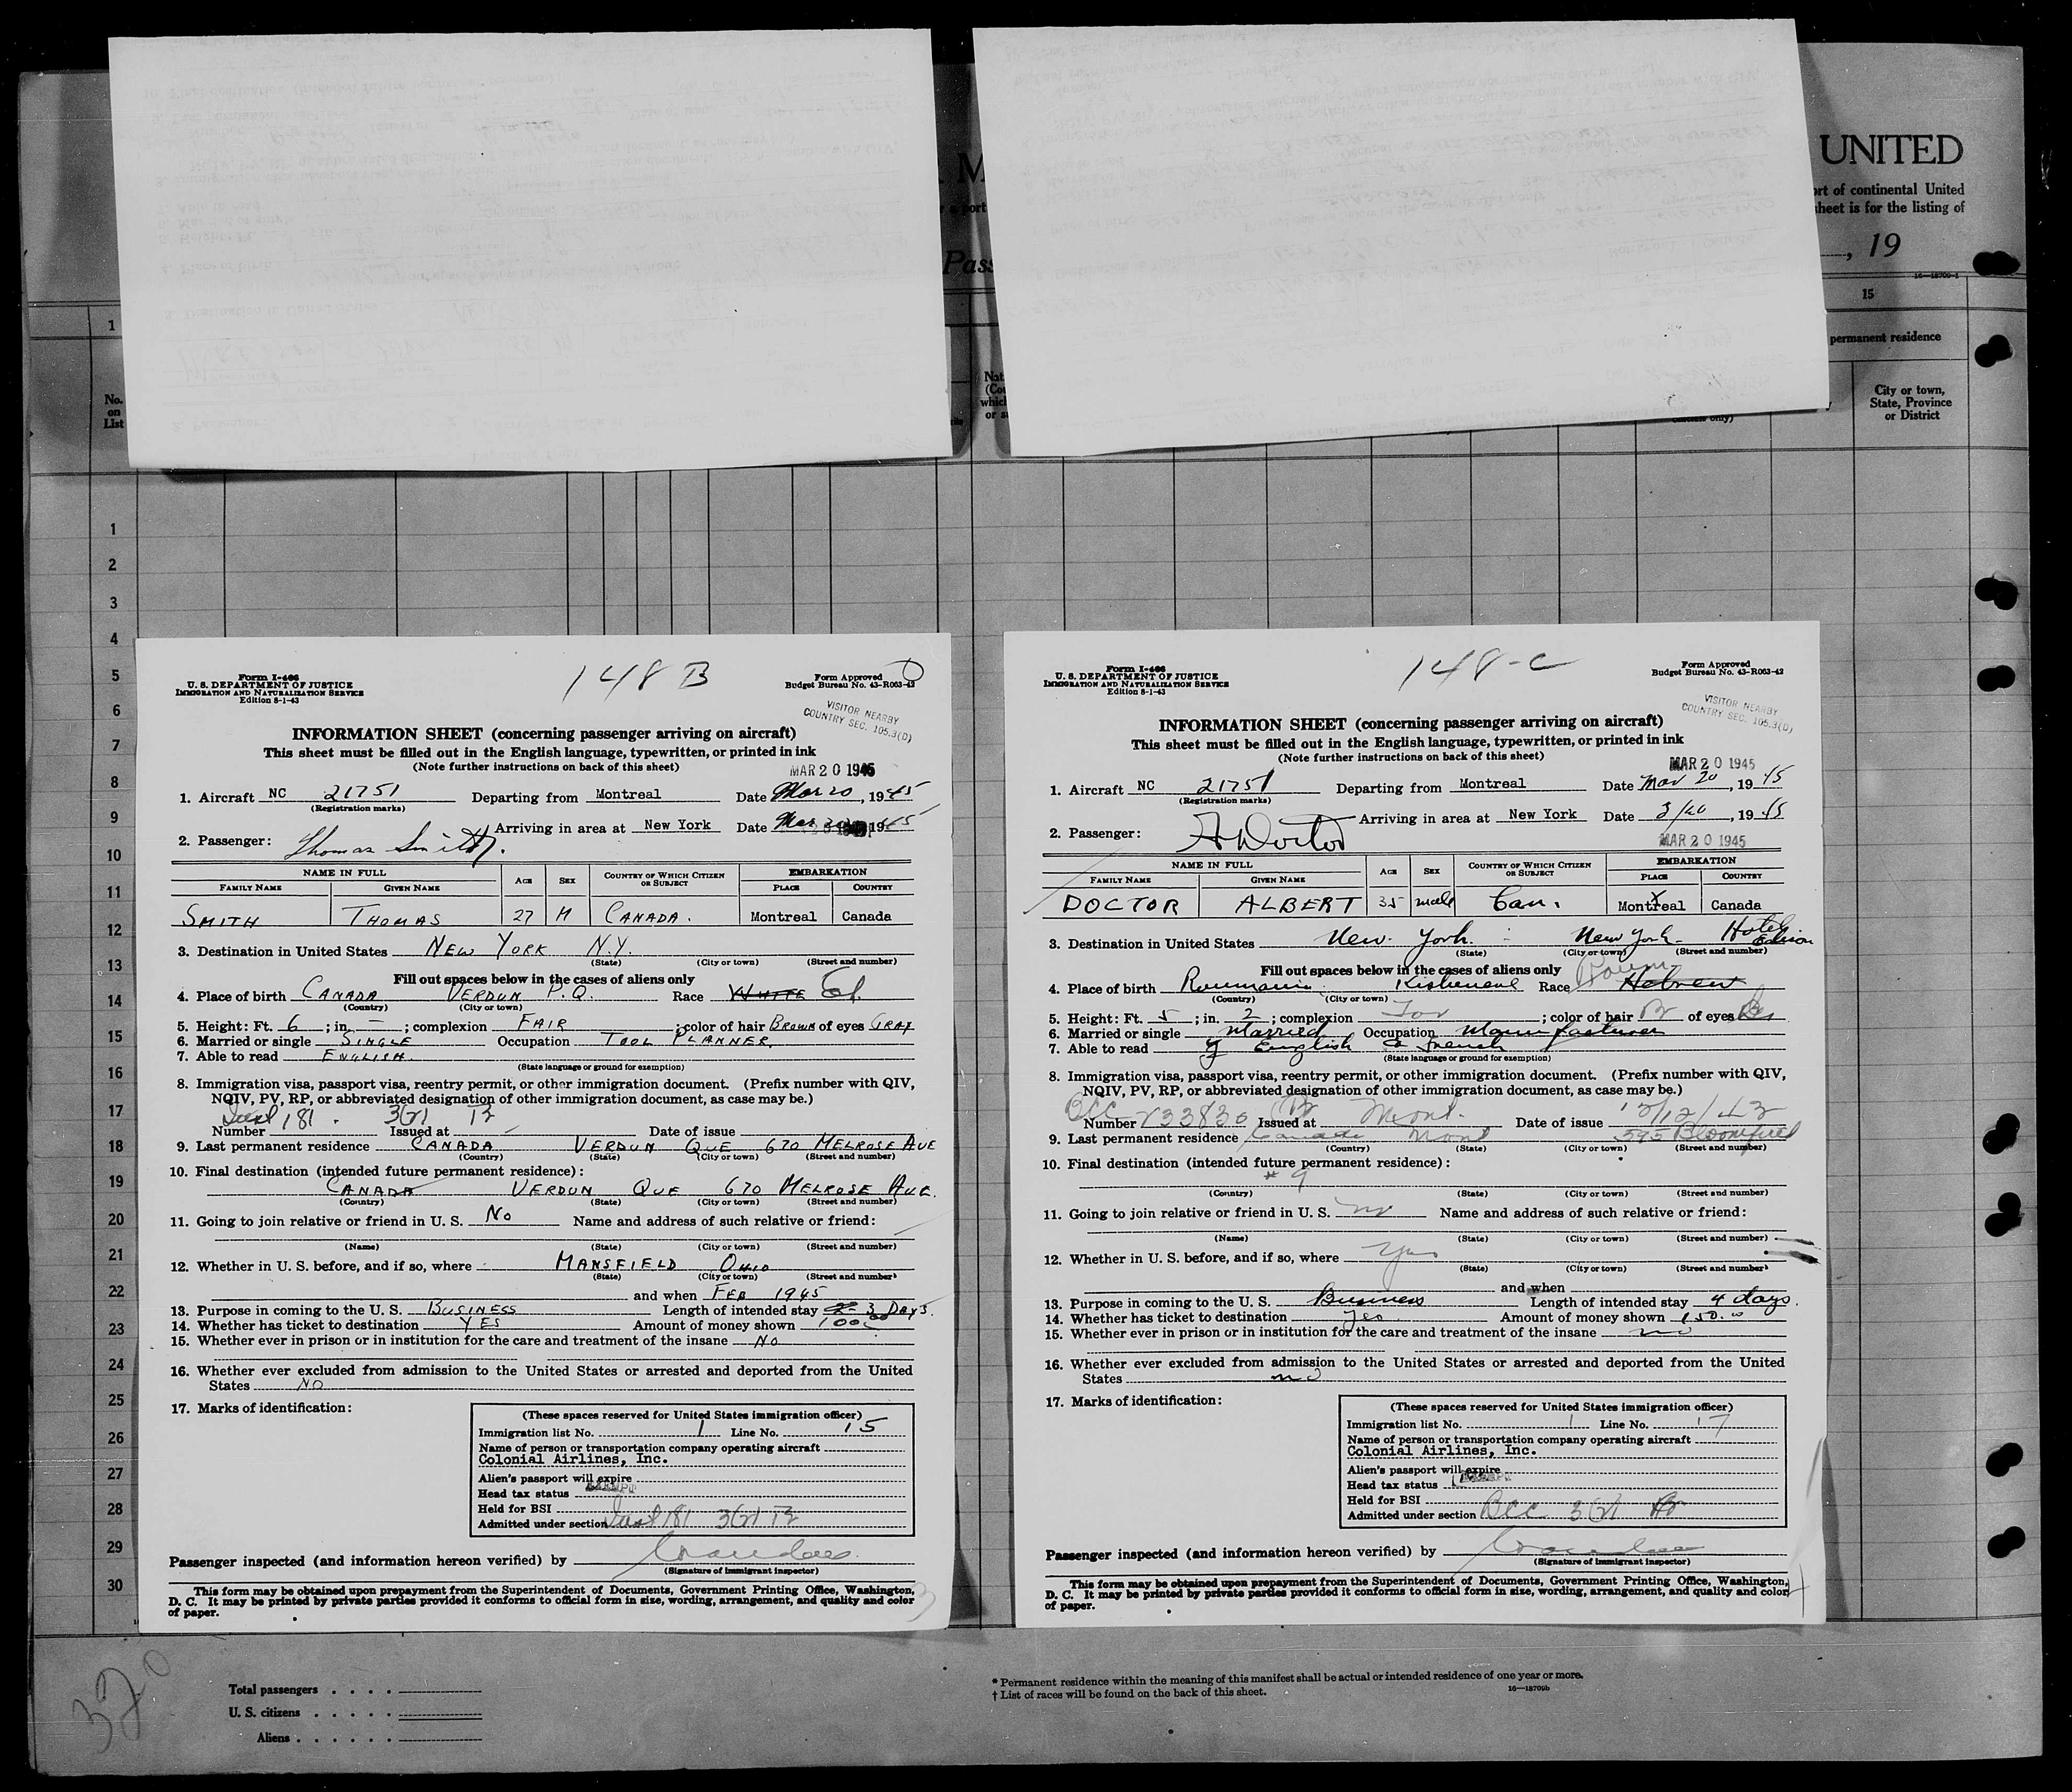 UNITED
ort of continental United
heet is for the listing of
, 19
16—18709-1
a port
Pass
1
15
permanent residence
No.
on
List
City or town,
State, Province
or District
1
2
3
4
5
6
7
8
9
10
11
12
13
14
15
16
17
18
19
20
21
22
23
24
25
26
27
28
29
30
Form I-466
U. S. DEPARTMENT OF JUSTICE
IMMIGRATION AND NATURALIZATION SERVICE
Edition 8-1-43
148 B
Form Approved
Budget Bureau No. 43-R063-42
VISITOR NEARBY
COUNTRY SEC. 105.3(D)
INFORMATION SHEET (concerning passenger arriving on aircraft)
This sheet must be filled out in the English language, typewritten, or printed in ink
(Note further instructions on back of this sheet)
MAR 20 1945
1. Aircraft NC 21751 Departing from Montreal Date Mar 20, 1945
(Registration marks)
Arriving in area at New York Date Mar 1945
2. Passenger: Thomas Smith.
NAME IN FULL AGE SEX COUNTRY OF WHICH CITIZEN OR SUBJECT EMBARKATION
FAMILY NAME GIVEN NAME PLACE COUNTRY
SMITH THOMAS 27 M CANADA. Montreal Canada
3. Destination in United States NEW YORK N.Y.
(State) (City or town) (Street and number)
Fill out spaces below in the cases of aliens only
4. Place of birth CANADA VERDUN P.Q. Race WHITE
(Country) (City or town)
5. Height: Ft. 6 ; in. – ; complexion FAIR ; color of hair BROWN of eyes GRAY
6. Married or single SINGLE Occupation TOOL PLANNER.
7. Able to read ENGLISH.
(State language or ground for exemption)
8. Immigration visa, passport visa, reentry permit, or other immigration document. (Prefix number with QIV,
NQIV, PV, RP, or abbreviated designation of other immigration document, as case may be.)
Number 181 Issued at Date of issue
9. Last permanent residence CANADA VERDUN QUE 670 MELROSE AVE
(Country) (State) (City or town) (Street and number)
10. Final destination (intended future permanent residence):
CANADA VERDUN QUE 670 MELROSE AVE.
(Country) (State) (City or town) (Street and number)
11. Going to join relative or friend in U. S. NO Name and address of such relative or friend:
(Name) (State) (City or town) (Street and number)
12. Whether in U. S. before, and if so, where MANSFIELD OHIO
(State) (City or town) (Street and number)
and when FEB 1945
13. Purpose in coming to the U. S. BUSINESS Length of intended stay 3 DAYS.
14. Whether has ticket to destination YES Amount of money shown 100
15. Whether ever in prison or in institution for the care and treatment of the insane NO
16. Whether ever excluded from admission to the United States or arrested and deported from the United
States NO
17. Marks of identification:
(These spaces reserved for United States immigration officer)
Immigration list No. 1 Line No. 15
Name of person or transportation company operating aircraft
Colonial Airlines, Inc.
Alien's passport will expire
Head tax status EXEMPT
Held for BSI
Admitted under section 181
Passenger inspected (and information hereon verified) by
(Signature of immigrant inspector)
This form may be obtained upon prepayment from the Superintendent of Documents, Government Printing Office, Washington,
D. C. It may be printed by private parties provided it conforms to official form in size, wording, arrangement, and quality and color
of paper.
Form I-466
U. S. DEPARTMENT OF JUSTICE
IMMIGRATION AND NATURALIZATION SERVICE
Edition 8-1-43
148-C
Form Approved
Budget Bureau No. 43-R063-42
VISITOR NEARBY
COUNTRY SEC. 105.3(D)
INFORMATION SHEET (concerning passenger arriving on aircraft)
This sheet must be filled out in the English language, typewritten, or printed in ink
(Note further instructions on back of this sheet)
MAR 20 1945
1. Aircraft NC 21751 Departing from Montreal Date Mar 20, 1945
(Registration marks)
Arriving in area at New York Date 3/20, 1945
2. Passenger: A Doctor
MAR 20 1945
NAME IN FULL AGE SEX COUNTRY OF WHICH CITIZEN OR SUBJECT EMBARKATION
FAMILY NAME GIVEN NAME PLACE COUNTRY
DOCTOR ALBERT 35 male Can. Montreal Canada
3. Destination in United States New York New York Hotel Edison
(State) (City or town) (Street and number)
Fill out spaces below in the cases of aliens only
4. Place of birth Roumania Kishenew Race Hebrew Roum
(Country) (City or town)
5. Height: Ft. 5 ; in. 2 ; complexion ; color of hair Br of eyes
6. Married or single Married Occupation Manufacturer
7. Able to read English & French
(State language or ground for exemption)
8. Immigration visa, passport visa, reentry permit, or other immigration document. (Prefix number with QIV,
NQIV, PV, RP, or abbreviated designation of other immigration document, as case may be.)
Number BCC 233830 Issued at Mont. Date of issue
9. Last permanent residence Canada Mont 595 Bloomfield
(Country) (State) (City or town) (Street and number)
10. Final destination (intended future permanent residence):
# 9
(Country) (State) (City or town) (Street and number)
11. Going to join relative or friend in U. S. no Name and address of such relative or friend:
(Name) (State) (City or town) (Street and number)
12. Whether in U. S. before, and if so, where Yes
(State) (City or town) (Street and number)
and when
13. Purpose in coming to the U. S. Business Length of intended stay 4 days.
14. Whether has ticket to destination Yes Amount of money shown 150.00
15. Whether ever in prison or in institution for the care and treatment of the insane no
16. Whether ever excluded from admission to the United States or arrested and deported from the United
States no
17. Marks of identification:
(These spaces reserved for United States immigration officer)
Immigration list No. 1 Line No. 17
Name of person or transportation company operating aircraft
Colonial Airlines, Inc.
Alien's passport will expire
Head tax status EXEMPT
Held for BSI
Admitted under section BCC
Passenger inspected (and information hereon verified) by
(Signature of immigrant inspector)
This form may be obtained upon prepayment from the Superintendent of Documents, Government Printing Office, Washington,
D. C. It may be printed by private parties provided it conforms to official form in size, wording, arrangement, and quality and color
of paper.
320
Total passengers
U. S. citizens
Aliens
* Permanent residence within the meaning of this manifest shall be actual or intended residence of one year or more.
† List of races will be found on the back of this sheet.
16—18709b